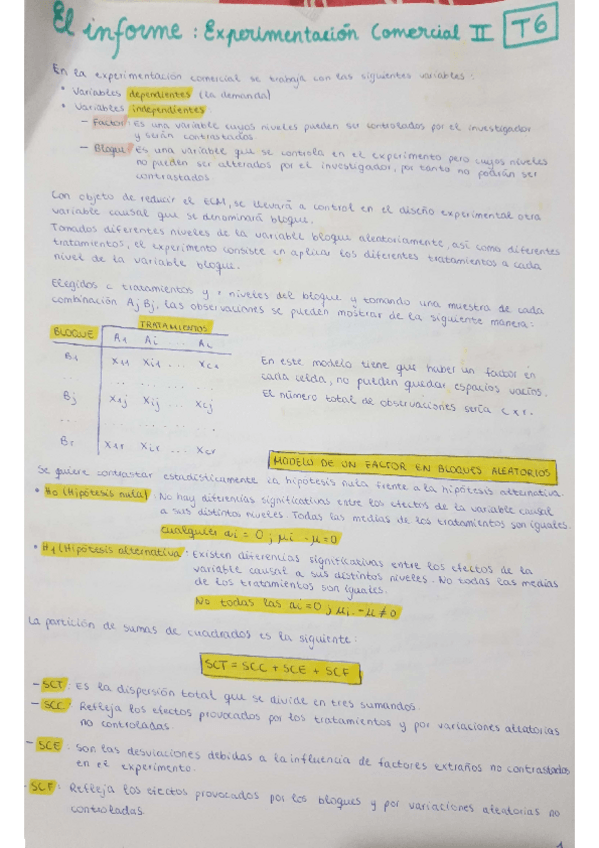 El informe: Experimentación Comercial II T6
En la experimentación comercial se trabaja con las siguientes variables:
• Variables dependientes (la demanda)
• Variables independientes
– Factor: Es una variable cuyos niveles pueden ser controlados por el investigador
y serán contrastados
– Bloque: Es una variable que se controla en el experimento pero cuyos niveles
no pueden ser alterados por el investigador, por tanto no podrán ser
contrastados
Con objeto de reducir el ECM, se llevará a control en el diseño experimental otra
variable causal que se denominará bloque.
Tomados diferentes niveles de la variable bloque aleatoriamente, así como diferentes
tratamientos, el experimento consiste en aplicar los diferentes tratamientos a cada
nivel de la variable bloque.
Elegidos c tratamientos y r niveles del bloque y tomando una muestra de cada
combinación Aj Bj, las observaciones se pueden mostrar de la siguiente manera:
TRATAMIENTOS
BLOQUE A1 Ai ... Ac
B1 X11 Xi1 ... Xc1
... ... ... ...
Bj X1j Xij ... Xcj
... ... ... ...
Br X1r Xir ... Xcr
En este modelo tiene que haber un factor en
cada celda, no pueden quedar espacios vacíos.
El número total de observaciones sería c x r.
MODELO DE UN FACTOR EN BLOQUES ALEATORIOS
Se quiere contrastar estadísticamente la hipótesis nula frente a la hipótesis alternativa.
• H0 (Hipótesis nula): No hay diferencias significativas entre los efectos de la variable causal
a sus distintos niveles. Todas las medias de los tratamientos son iguales.
cualquier ai = 0 ; μi. - μ = 0
• H1 (Hipótesis alternativa: Existen diferencias significativas entre los efectos de la
variable causal a sus distintos niveles. No todas las medias
de los tratamientos son iguales.
No todas las ai = 0 ; μi. - μ ≠ 0
La partición de sumas de cuadrados es la siguiente:
SCT = SCC + SCE + SCF
– SCT: Es la dispersión total que se divide en tres sumandos.
– SCC: Refleja los efectos provocados por los tratamientos y por variaciones aleatorias
no controladas.
– SCE: Son las desviaciones debidas a la influencia de factores extraños no contrastados
en el experimento.
– SCF: Refleja los efectos provocados por los bloques y por variaciones aleatorias no
controladas.